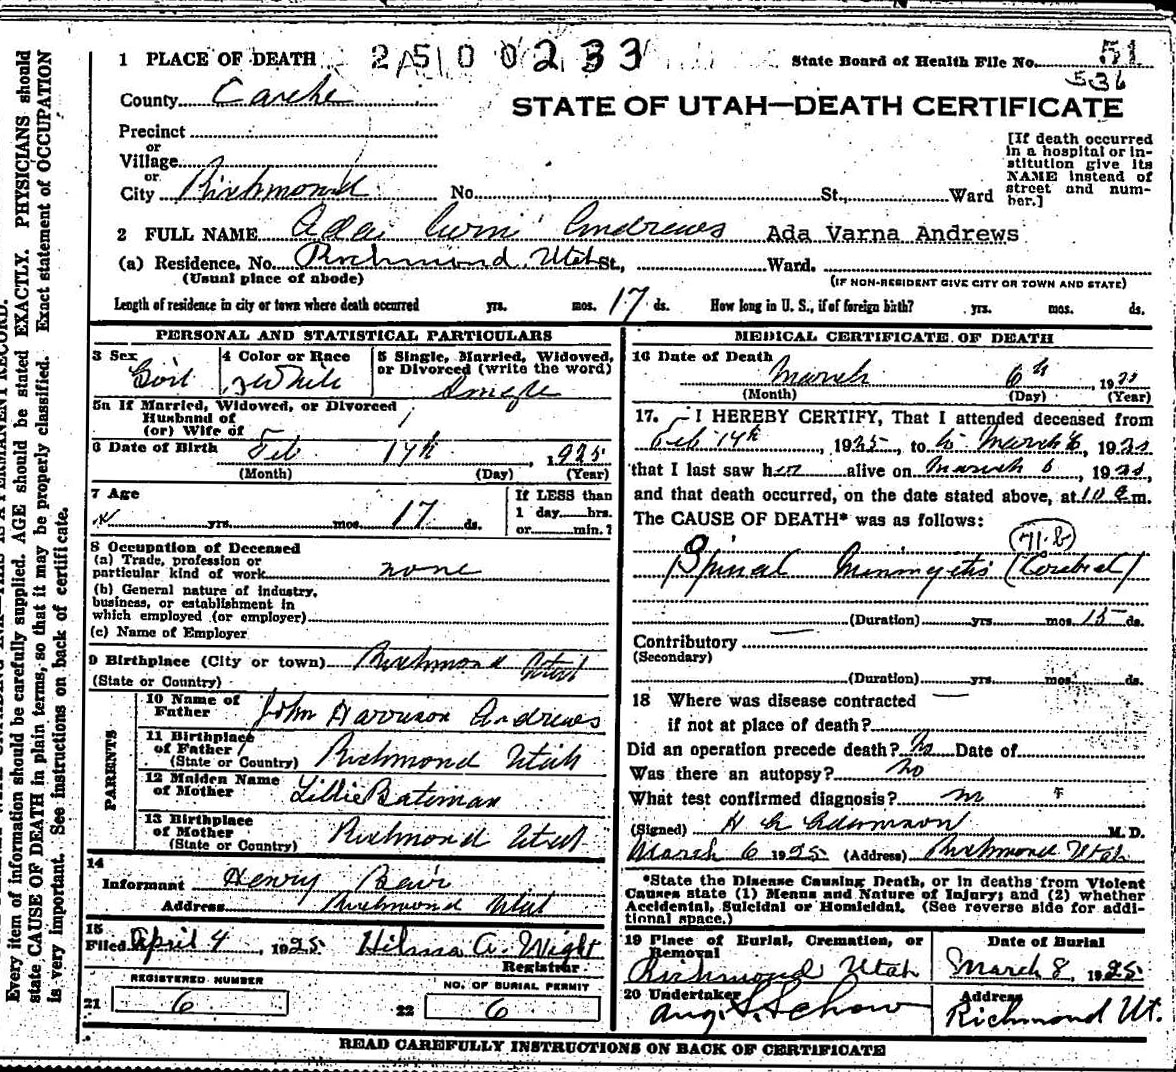 1 PLACE OF DEATH 2500233 State Board of Health File No. 51
536
County Cache
STATE OF UTAH—DEATH CERTIFICATE
Precinct
or
Village
or
City Richmond No. St., Ward
[If death occurred
in a hospital or in-
stitution give its
NAME instead of
street and num-
ber.]
2 FULL NAME Ada Andrews Ada Varna Andrews
(a) Residence, No. Richmond, Utah St., Ward.
(Usual place of abode) (IF NON-RESIDENT GIVE CITY OR TOWN AND STATE)
Length of residence in city or town where death occurred yrs. mos. 17 ds. How long in U. S., if of foreign birth? yrs. mos. ds.
PERSONAL AND STATISTICAL PARTICULARS
3 Sex Girl
4 Color or Race White
5 Single, Married, Widowed,
or Divorced (write the word)
Single
5a If Married, Widowed, or Divorced
Husband of
(or) Wife of
6 Date of Birth Feb 14th 1925
(Month) (Day) (Year)
7 Age yrs. mos. 17 ds.
If LESS than
1 day hrs.
or min.?
8 Occupation of Deceased
(a) Trade, profession or
particular kind of work none
(b) General nature of industry,
business, or establishment in
which employed (or employer)
(c) Name of Employer
9 Birthplace (City or town) Richmond Utah
(State or Country)
PARENTS
10 Name of
Father John Harrison Andrews
11 Birthplace
of Father
(State or Country) Richmond Utah
12 Maiden Name
of Mother Lillie Bateman
13 Birthplace
of Mother
(State or Country) Richmond Utah
14
Informant Henry Bair
Address Richmond Utah
15
Filed April 4, 1925 Hilma A. Wight
Registrar
REGISTERED NUMBER
21 6
NO. OF BURIAL PERMIT
22 6
MEDICAL CERTIFICATE OF DEATH
16 Date of Death
March 6th 1925
(Month) (Day) (Year)
17. I HEREBY CERTIFY, That I attended deceased from
Feb 14th, 1925, to March 6, 1925
that I last saw her alive on March 6, 1925,
and that death occurred, on the date stated above, at 10 m.
The CAUSE OF DEATH* was as follows:
71-B
Spinal (Cerebral)
(Duration) yrs. mos. 15 ds.
Contributory
(Secondary)
(Duration) yrs. mos. ds.
18 Where was disease contracted
if not at place of death?
Did an operation precede death? No Date of
Was there an autopsy? no
What test confirmed diagnosis?
(Signed) Adamson M.D.
March 6 1925 (Address) Richmond Utah
*State the Disease Causing Death, or in deaths from Violent
Causes state (1) Means and Nature of Injury; and (2) whether
Accidental, Suicidal or Homicidal. (See reverse side for addi-
tional space.)
19 Place of Burial, Cremation, or
Removal
Richmond Utah
Date of Burial
March 8, 1925
20 Undertaker
Aug. S. Schow
Address
Richmond Ut.
READ CAREFULLY INSTRUCTIONS ON BACK OF CERTIFICATE
Every item of information should be carefully supplied. AGE should be stated EXACTLY. PHYSICIANS should
state CAUSE OF DEATH in plain terms, so that it may be properly classified. Exact statement of OCCUPATION
is very important. See instructions on back of certificate.